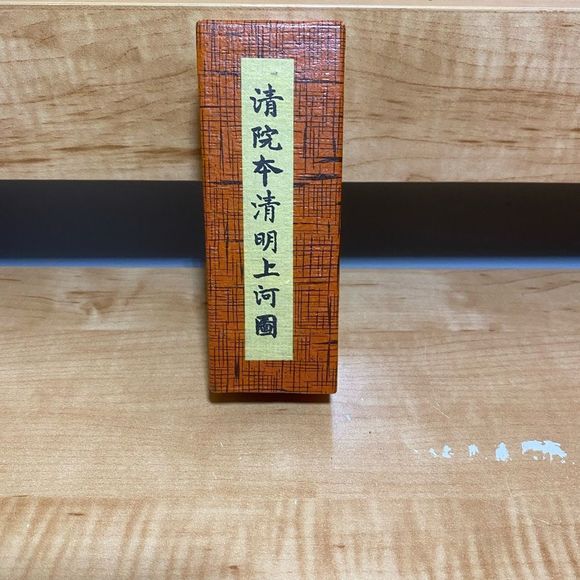 清院本清明上河圖